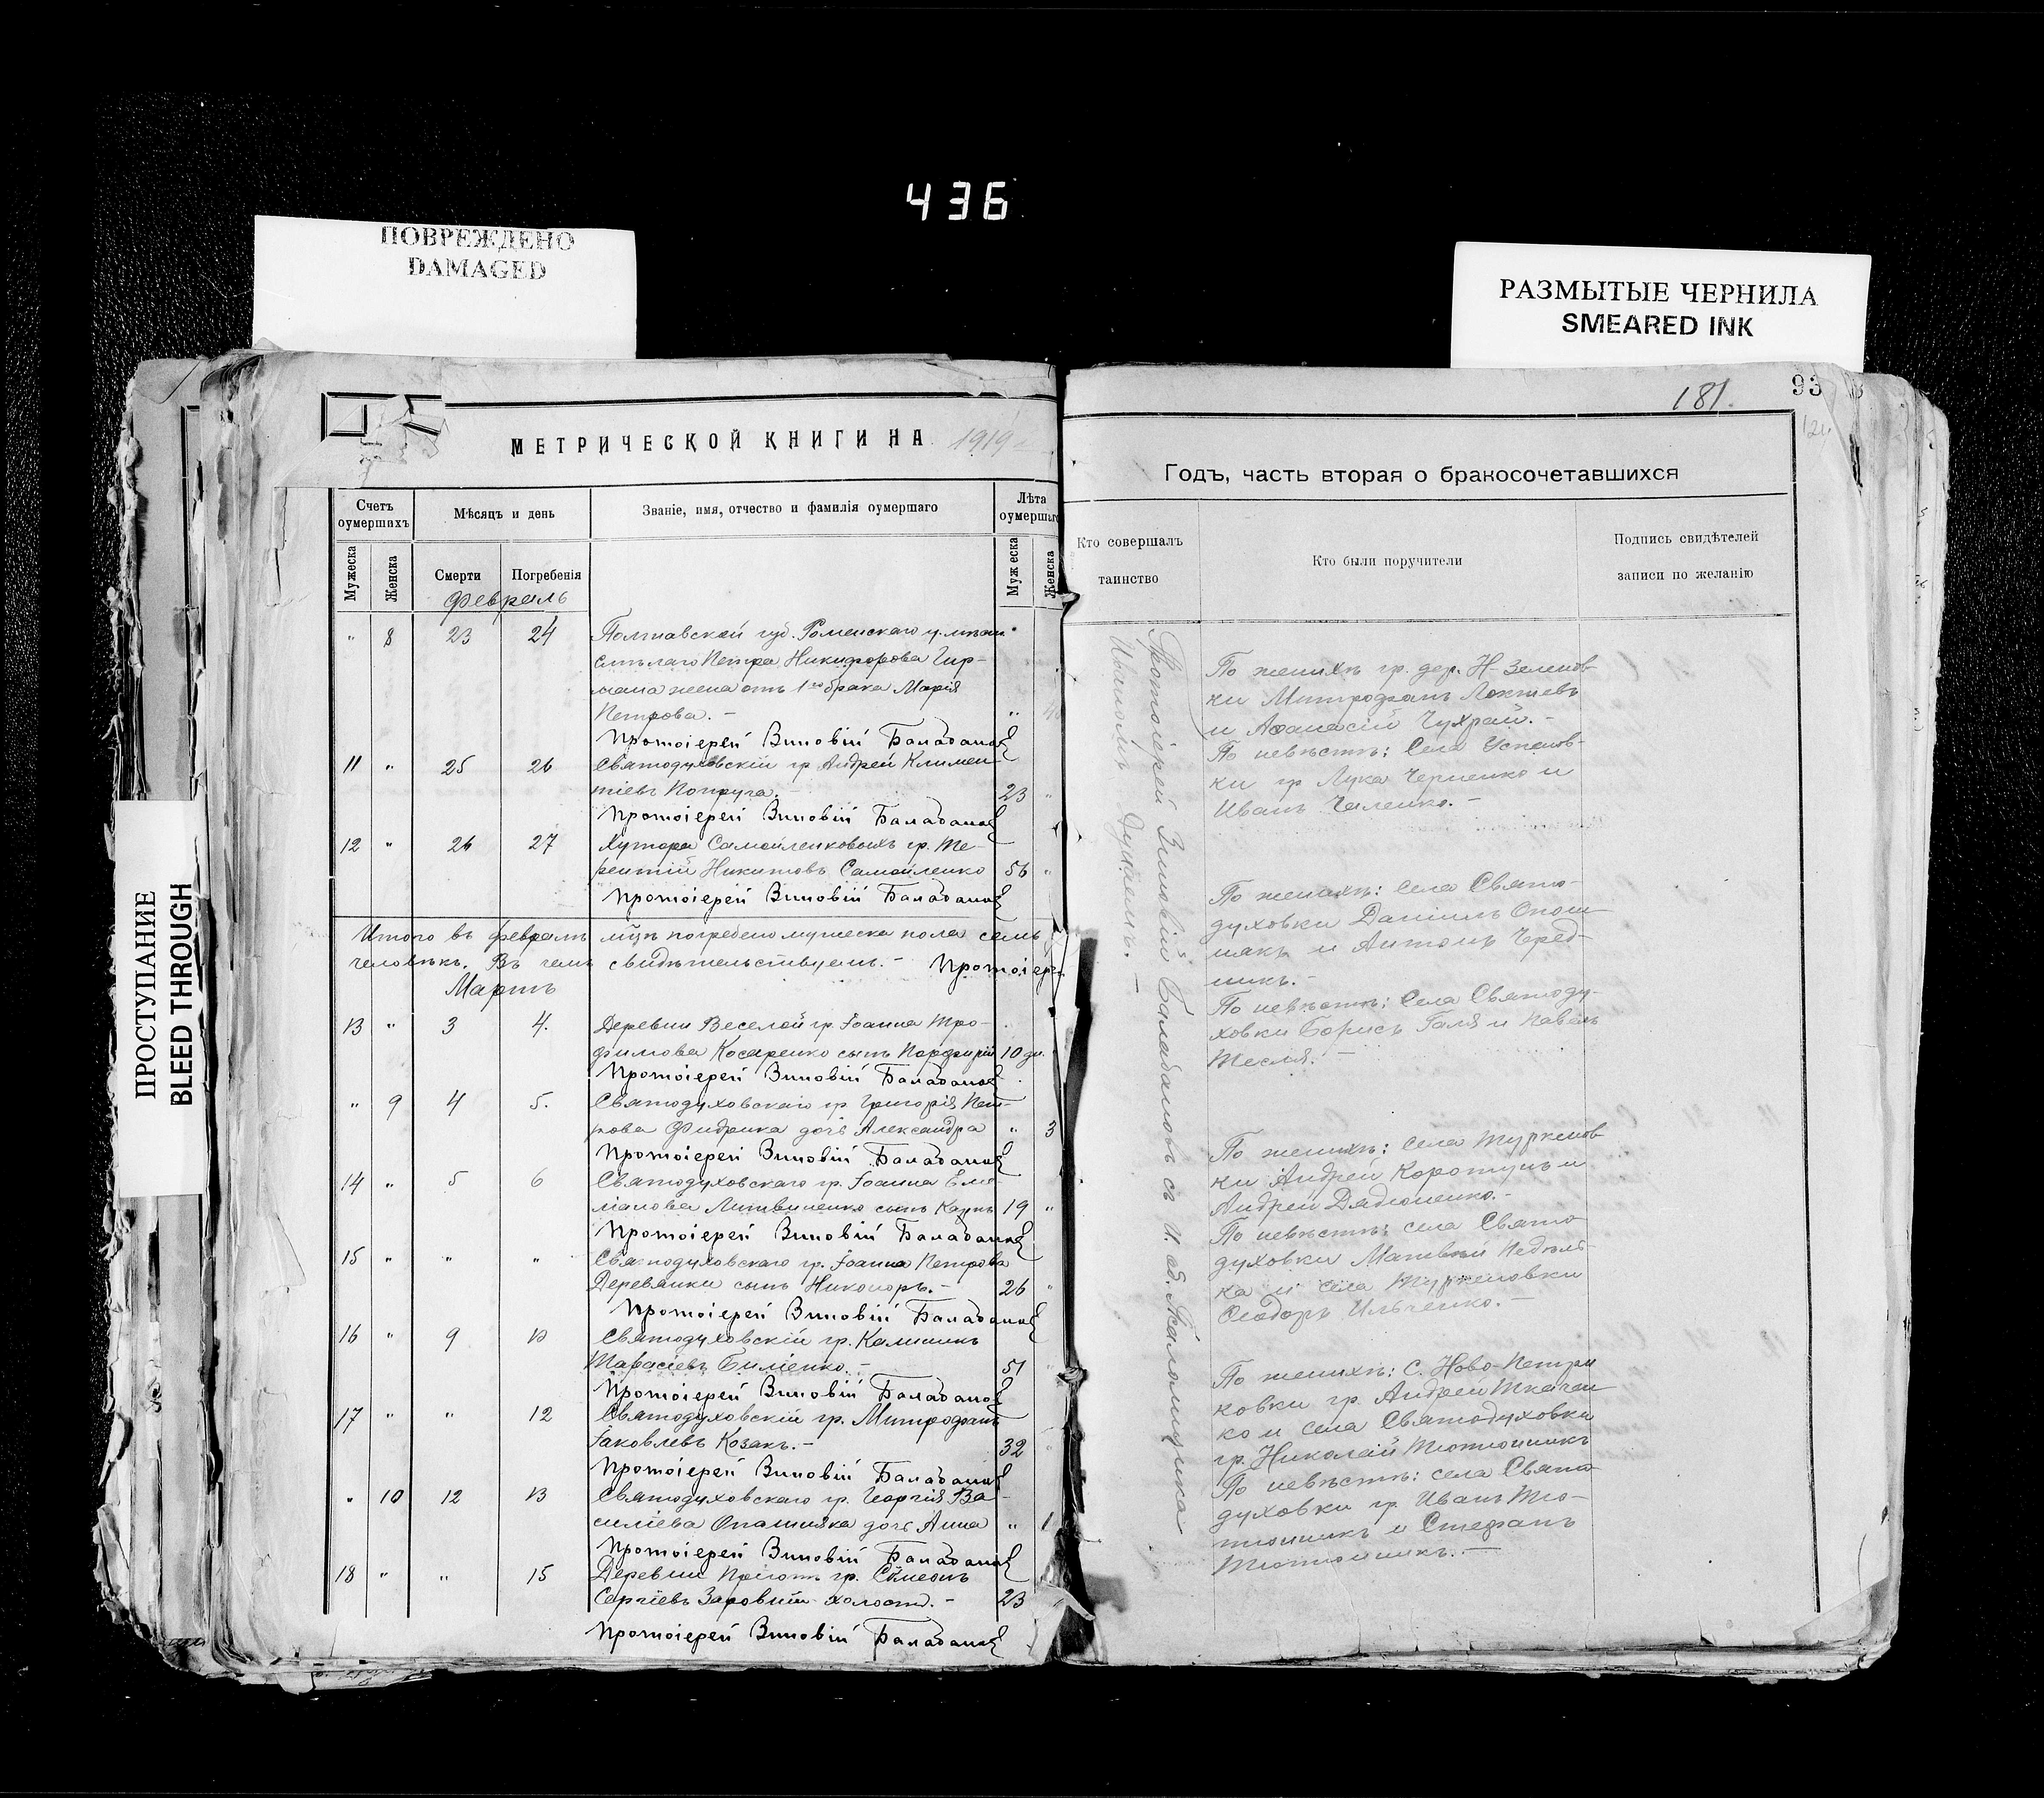 436
ПОВРЕЖДЕНО
DAMAGED
РАЗМЫТЫЕ ЧЕРНИЛА
SMEARED INK
ПРОСТУПАНИЕ
BLEED THROUGH
МЕТРИЧЕСКОЙ КНИГИ НА 1919
Счетъ оумершихъ
Мѣсяцъ и день
Званіе, имя, отчество и фамилія оумершаго
Лѣта оумершаго
Мужеска
Женска
Смерти
Погребенія
Мужеска
Женска
Февраль
" 8 23 24 Полтавской губ. Роменскаго у.
Петра Никифорова Гир-
мана жена отъ 1го брака Марія
Петрова. -
Протоіерей Зиновій Балабанов
11 " 25 26 Святодуховскій гр Андрей Климен-
тіевъ Попруга. - 23 "
Протоіерей Зиновій Балабанов
12 " 26 27 Хутора Самойленковыхъ гр. Те-
рентій Никитовъ Самойленко 56 "
Протоіерей Зиновій Балабанов
Итого въ февралѣ мцѣ погребено мужеска пола семь
человѣкъ. Въ чемъ свидѣтельствуемъ. - Протоіерей
Мартъ
13 " 3 4. Деревни Веселой гр. Іоанна Тро-
фимова Косаренко сынъ Порфирій 10 дн.
Протоіерей Зиновій Балабанов
" 9 4 5. Святодуховскаго гр Григорія Пет-
рова Фидрика дочь Александра " 3
Протоіерей Зиновій Балабанов
14 " 5 6 Святодуховскаго гр. Іоанна Еме-
ліанова Литвиненко сынъ Карпъ 19 "
Протоіерей Зиновій Балабанов
15 " " " Святодуховскаго гр. Іоанна Петрова
Деревянки сынъ Никоноръ. - 26 "
Протоіерей Зиновій Балабанов
16 " 9 10 Святодуховскій гр. Калинникъ
Тарасіевъ Биліенко. - 51
Протоіерей Зиновій Балабанов
17 " " 12 Святодуховскій гр. Митрофанъ
Іаковлевъ Козакъ. - 32
Протоіерей Зиновій Балабанов
" 10 12 13 Святодуховскаго гр. Георгія Ва-
силіева Опашняка дочь Анна " 1
Протоіерей Зиновій Балабанов
18 " " 15 Деревни гр. Сѵмеонъ
Сергіевъ холост. - 23
Протоіерей Зиновій Балабанов
181.
93
Годъ, часть вторая о бракосочетавшихся
Кто совершалъ таинство
Кто были поручители
Подпись свидѣтелей записи по желанію
Протоіерей Зиновій Балабановъ съ и. об. Псаломщика
По женихѣ гр. дер. Н-Зеленов-
ки Митрофанъ Локтевъ
и Афанасій Чухрай. -
По невѣстѣ: Села Успенов-
ки гр Лука Черненко и
Иванъ Чаленко. -
По женихѣ: Села Свято-
духовки Даніилъ Опош-
някъ и Антонъ Черед-
никъ. -
По невѣстѣ: Села Святоду-
ховки Борисъ Галя и Павелъ
Тесля. -
По женихѣ: Села Туркенов-
ки Андрей Коротунъ и
Андрей Дядюненко. -
По невѣстѣ: села Свято-
духовки Матвѣй Недѣль-
ка и села Туркеновки
Ѳеодоръ Ильченко. -
По женихѣ: С. Ново-Петри-
ковки гр. Андрей Ткачен-
ко и села Святодуховки
гр. Николай Тютюнникъ
По невѣстѣ: села Свято-
духовки гр. Иванъ Тю-
тюнникъ и Стефанъ
Тютюнникъ. -